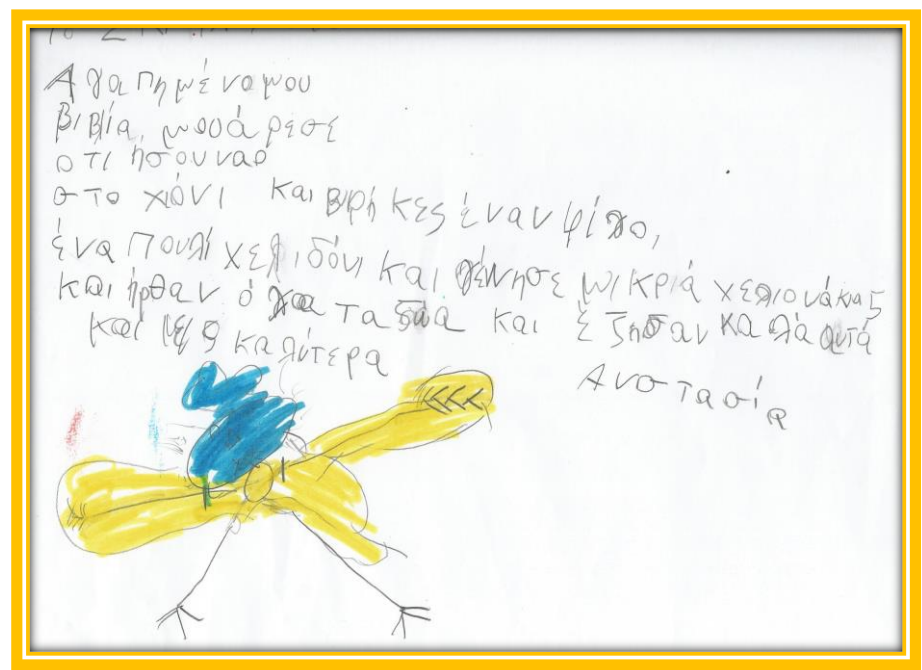 Αγαπημένομου
βιβλία, μουάρεσε
οτι ήσουνασ
στο χιόνι και βιρήκες έναν φίλο,
ένα πουλί χελιδόνι και γέννησε μικριά χελιονάκια
και ήρθαν όλα τα ζώα και έζησαν καλά αυτά
και μεις καλύτερα
Ανστασία